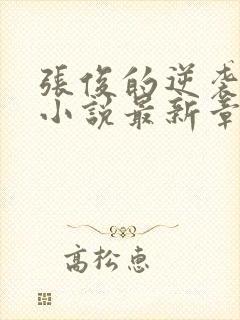 張俊的逆袭
小説最新章
高松惠